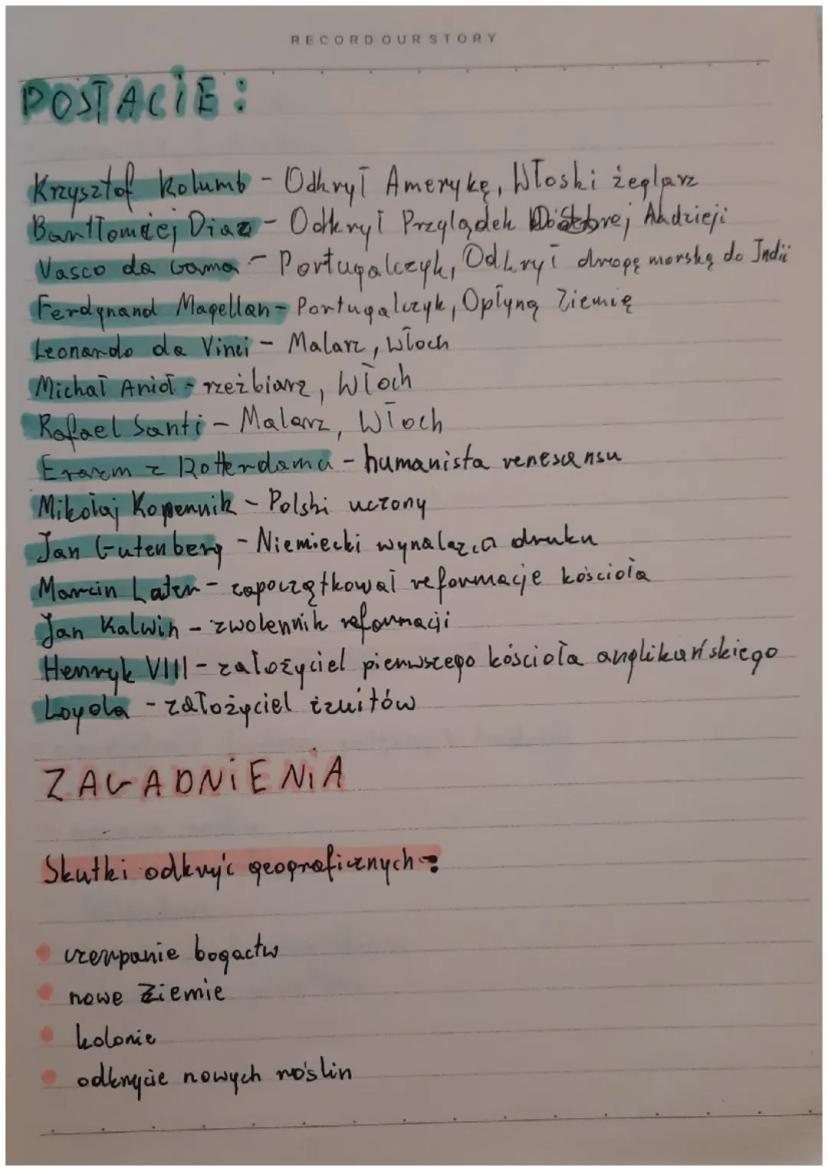 RECORD OUR STORY
POSTACIE:
Krzysztof Kolumb - Odkrył Amerykę, Włoski żeglarz
Bartłomiej Diaz - Odkrył Przylądek Dobrej Nadzieji
Vasco da Gama - Portugalczyk, Odkrył drogę morską do Indii
Ferdynand Magellan - Portugalczyk, Opłyną Ziemię
Leonardo da Vinci - Malarz, Włoch
Michał Anioł - rzeźbiarz, Włoch
Rafael Santi - Malarz, Włoch
Erazm z Rotterdamu - humanista renesansu
Mikołaj Kopernik - Polski uczony
Jan Gutenberg - Niemiecki wynalazca druku
Marcin Luter - zapoczątkował reformacje kościoła
Jan Kalwin - zwolennik reformacji
Henryk VIII - założyciel pierwszego kościoła anglikańskiego
Loyola - założyciel izuitów
ZAGADNIENIA
Skutki odkryć geograficznych:
• czerpanie bogactw
• nowe Ziemie
• kolonie
• odkrycie nowych roślin